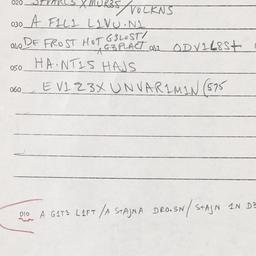 020 SPARLS XMUR35/VOLKNS
030 A F1L1 L1VU.N1
040 DE FROST HOT G3LOST/
G3PLACT 042 ODV1L8St
050 HA.NT1S HAJS
060 EV1Z3X UNVAR1M1N (575
010 A G1T3 L1FT/A StAJNA DRO.SN/StAJN 1N D3